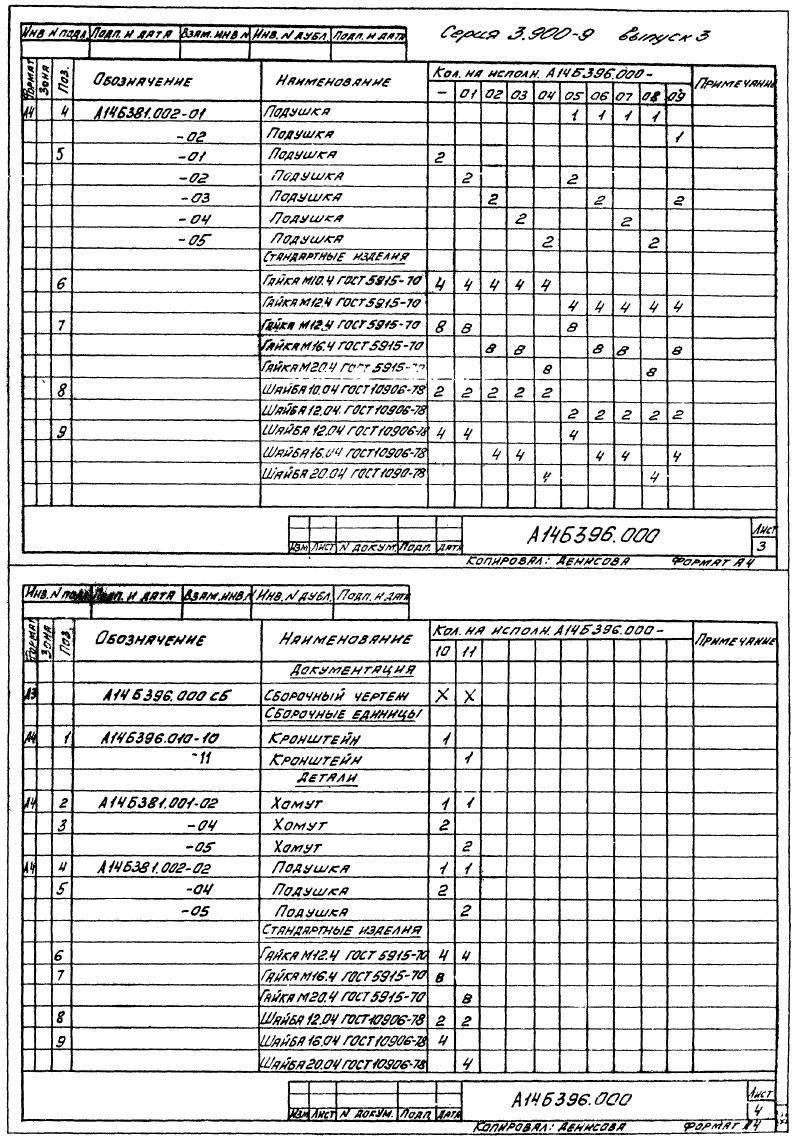 Серия 3.900-9 выпуск 3
Инв. N подл. Подп. и дата Взам. инв. N Инв. N дубл. Подп. и дата
Формат Зона Поз. Обозначение Наименование Кол. на исполн. А14Б396.000- Примечание
- 01 02 03 04 05 06 07 08 09
А4 4 А14Б381.002-01 Подушка 1 1 1 1
-02 Подушка 1
5 -01 Подушка 2
-02 Подушка 2 2
-03 Подушка 2 2 2
-04 Подушка 2 2
-05 Подушка 2 2
Стандартные изделия
6 Гайка М10.4 ГОСТ 5915-70 4 4 4 4 4
Гайка М12.4 ГОСТ 5915-70 4 4 4 4 4
7 Гайка М12.4 ГОСТ 5915-70 8 8 8
Гайка М16.4 ГОСТ 5915-70 8 8 8 8 8
Гайка М20.4 ГОСТ 5915-70 8 8
8 Шайба 10.04 ГОСТ 10906-78 2 2 2 2 2
Шайба 12.04 ГОСТ 10906-78 2 2 2 2 2
9 Шайба 12.04 ГОСТ 10906-78 4 4 4
Шайба 16.04 ГОСТ 10906-78 4 4 4 4 4
Шайба 20.04 ГОСТ 1090-78 4 4
Изм Лист N докум. Подп. Дата А14Б396.000 Лист 3
Копировал: Денисова Формат А4
Инв. N подл. Подп. и дата Взам. инв. N Инв. N дубл. Подп. и дата
Формат Зона Поз. Обозначение Наименование Кол. на исполн. А14Б396.000- Примечание
10 11
Документация
А3 А14Б396.000 СБ Сборочный чертеж X X
Сборочные единицы
А4 1 А14Б396.010-10 Кронштейн 1
-11 Кронштейн 1
Детали
А4 2 А14Б381.001-02 Хомут 1 1
3 -04 Хомут 2
-05 Хомут 2
А4 4 А14Б381.002-02 Подушка 1 1
5 -04 Подушка 2
-05 Подушка 2
Стандартные изделия
6 Гайка М12.4 ГОСТ 5915-70 4 4
7 Гайка М16.4 ГОСТ 5915-70 8
Гайка М20.4 ГОСТ 5915-70 8
8 Шайба 12.04 ГОСТ 10906-78 2 2
9 Шайба 16.04 ГОСТ 10906-78 4
Шайба 20.04 ГОСТ 10906-78 4
Изм Лист N докум. Подп. Дата А14Б396.000 Лист 4
Копировал: Денисова Формат А4